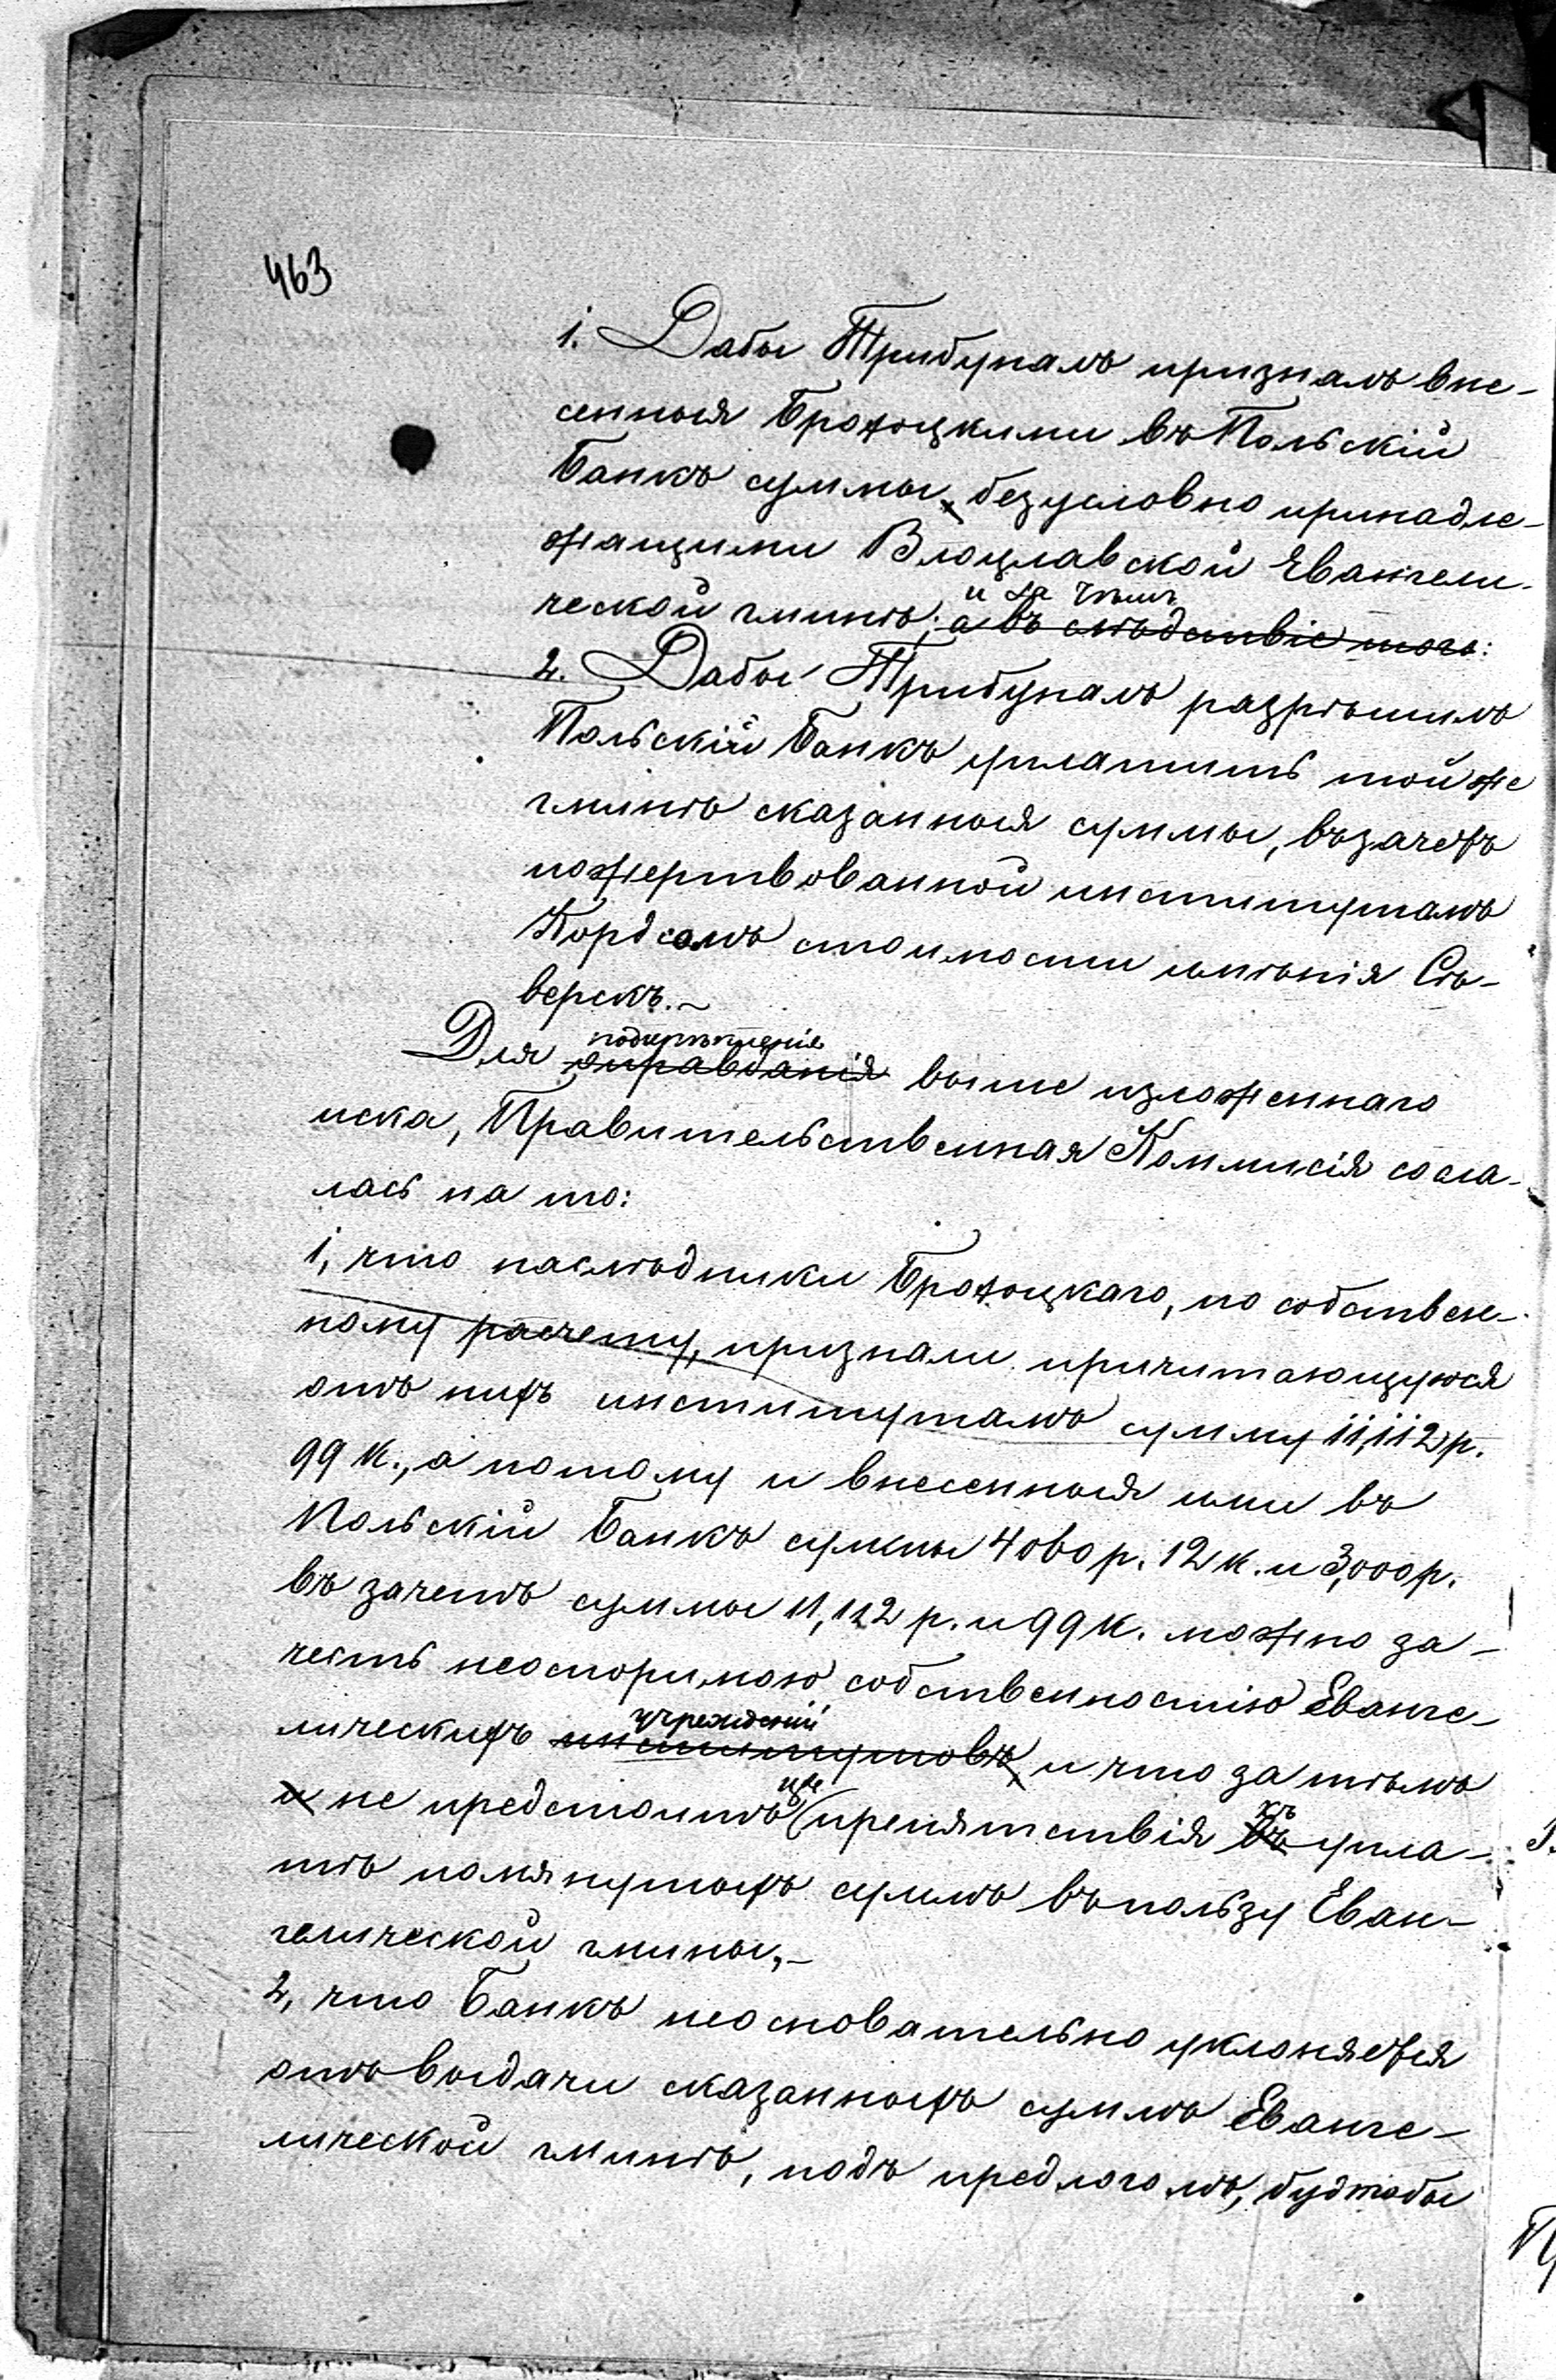 463
1. Дабы Трибуналъ призналъ вне-
сенныя Брохоцкими въ Польскій
Банкъ суммы безусловно принадле-
жащими Влоцлавской Евангели-
ческой гминѣ; а въ слѣдствіе того:
и за тѣмъ
2. Дабы Трибуналъ разрѣшилъ
Польскій Банкъ уплатить той же
гминѣ сказанныя суммы, въ зачетъ
пожертвованной институтамъ
Кордсомъ стоимости имѣнія Сѣ-
верскъ.
подкрѣпленія
Для оправданія выше изложеннаго
иска, Правительственная Коммисія сосла-
лась на то:
1, что наслѣдники Брохоцкаго, по собствен-
ному расчету, признали причитающуюся
отъ нихъ институтамъ сумму 11,112 р.
99 к., а потому и внесенныя ими въ
Польскій Банкъ суммы 4060 р. 12 к. и 3,000 р.
въ зачетъ суммы 11,112 р. и 99 к. можно за-
честь неоспоримою собственностію Еванге-
учрежденій
лическихъ институтовъ, и что за тѣмъ
и не предстоитъ препятствія въ упла-
къ
тѣ помянутыхъ суммъ въ пользу Еван-
гелической гмины,-
2, что Банкъ неосновательно уклоняется
отъ выдачи сказанныхъ суммъ Еванге-
лической гминѣ, подъ предлогомъ, будтобы